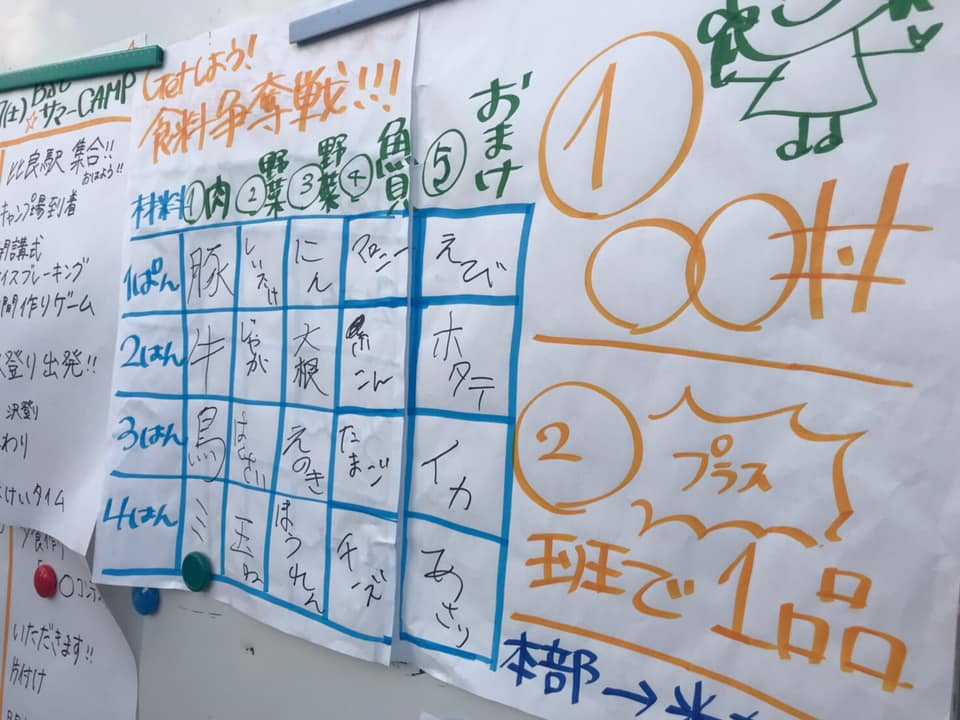 サマーCAMP
比良駅 集合!!
おはよう!!
キャンプ場到着
開講式
アイスブレーキング
仲間作りゲーム
沢登り出発!!
沢登り
いただきます!!
片付け
Getしよう!
食料争奪戦!!!
材料 ①肉 ②野菜 ③野菜 ④ ⑤おまけ
1ぱん 豚 しいたけ にん マロニー えび
2はん 牛 じゃが 大根 糸こん ホタテ
3はん 鳥 はくさい えのき たまご イカ
4はん ミ 玉ね ほうれん チーズ あさり
①
○○丼
②
プラス
班で1品
本部→